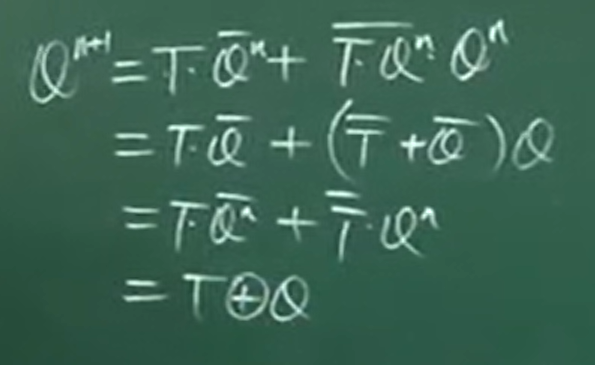 Qⁿ⁺¹ = T·Q̅ⁿ + \overline{T·Qⁿ}·Qⁿ
= T·Q̅ + (T̅ + Q̅)Q
= T·Q̅ⁿ + T̅·Qⁿ
= T⊕Q